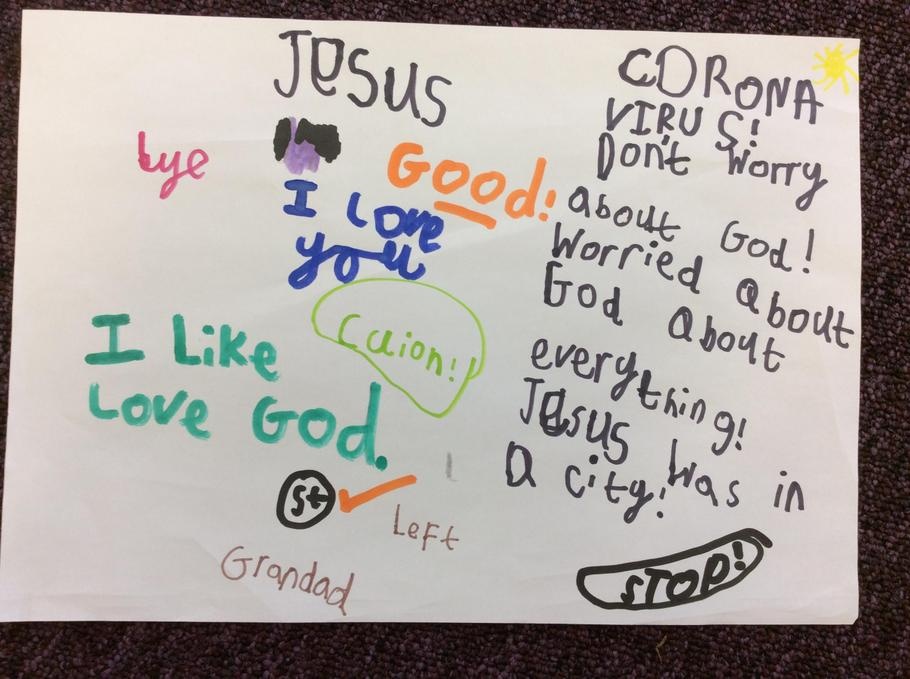 JESUS
bye
GOOd!
I Love
you
Caion!!
I Like
Love God.
St
Left
Grandad
CORONA
VIRUS!
Don't worry
about God!
Worried about
God about
everything!
Jesus was in
a city!
STOP!